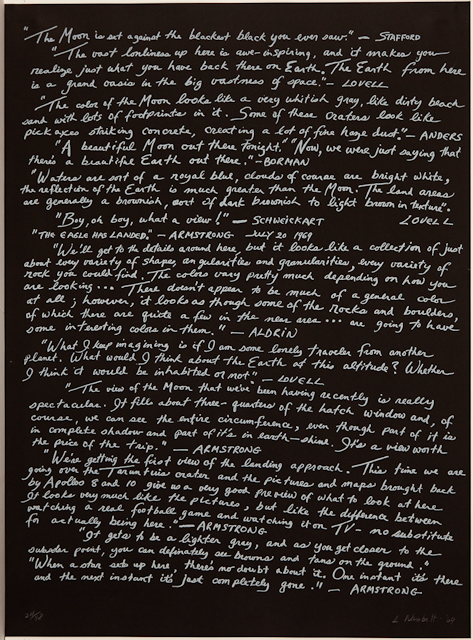 "The Moon is set against the blackest black you ever saw." — STAFFORD
"The vast lonliness up here is awe-inspiring, and it makes you
realize just what you have back there on Earth. The Earth from here
is a grand oasis in the big vastness of space." — LOVELL
"The color of the Moon looks like a very whitish gray, like dirty beach
sand with lots of footprints in it. Some of these craters look like
pickaxes striking concrete, creating a lot of fine haze dust." — ANDERS
"A beautiful Moon out there tonight." "Now, we were just saying that
there's a beautiful Earth out there." — BORMAN
"Waters are sort of a royal blue, clouds of course are bright white,
the reflection of the Earth is much greater than the Moon. The land areas
are generally a brownish, sort of dark brownish to light brown in texture".
LOVELL
"Boy, oh boy, what a view!" — SCHWEICKART
"THE EAGLE HAS LANDED," — ARMSTRONG JULY 20 1969
"We'll get to the details around here, but it looks like a collection of just
about every variety of shapes, angularities and granularities, every variety of
rock you could find. The colors vary pretty much depending on how you
are looking... There doesn't appear to be much of a general color
at all; however, it looks as though some of the rocks and boulders,
of which there are quite a few in the near area... are going to have
some interesting colors in them." — ALDRIN
"What I keep imagining is if I am some lonely traveler from another
planet. What would I think about the Earth at this altitude? Whether
I think it would be inhabited or not". — LOVELL
"The view of the Moon that we've been having recently is really
spectacular. It fills about three-quarters of the hatch window and, of
course, we can see the entire circumference, even though part of it is
in complete shadow and part of it's in earth-shine. It's a view worth
the price of the trip." — ARMSTRONG
"We're getting the first view of the landing approach. This time we are
going over the Taruntius crater and the pictures and maps brought back
by Apollos 8 and 10 give us a very good preview of what to look at here
It looks very much like the pictures, but like the difference between
watching a real football game and watching it on TV — no substitute
for actually being here." — ARMSTRONG
"It gets to be a lighter gray, and as you get closer to the
subsolar point, you can definately see browns and tans on the ground."
"When a star sets up here, there's no doubt about it. One instant it's there
and the next instant it's just completely gone." — ARMSTRONG